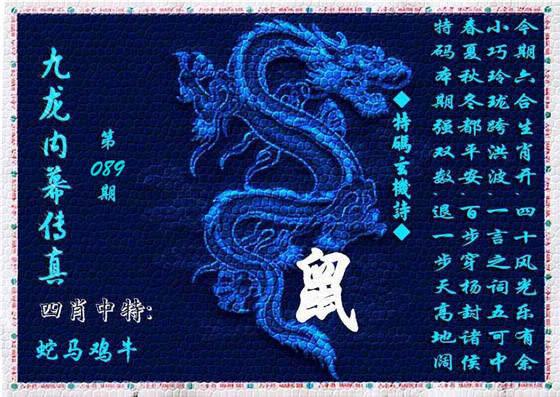 九龙内幕传真
第
089
期
四肖中特:
蛇马鸡牛
鼠
◆特码玄機詩◆
今期六合生肖开 四十风光乐有余
小巧玲珑跨洪波 一言之词五可中
春夏秋冬都平安 百步穿杨封诸侯
特码本期强双数 退一步天高地阔